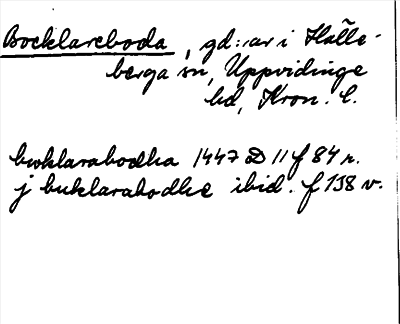 Bocklareboda, gd:ar i Hälle-
berga sn, Uppvidinge
hd, Kron. l.
bwklarabodha 1447 D 11 f 84 r.
j buklarabodhe ibid. f 138 v.